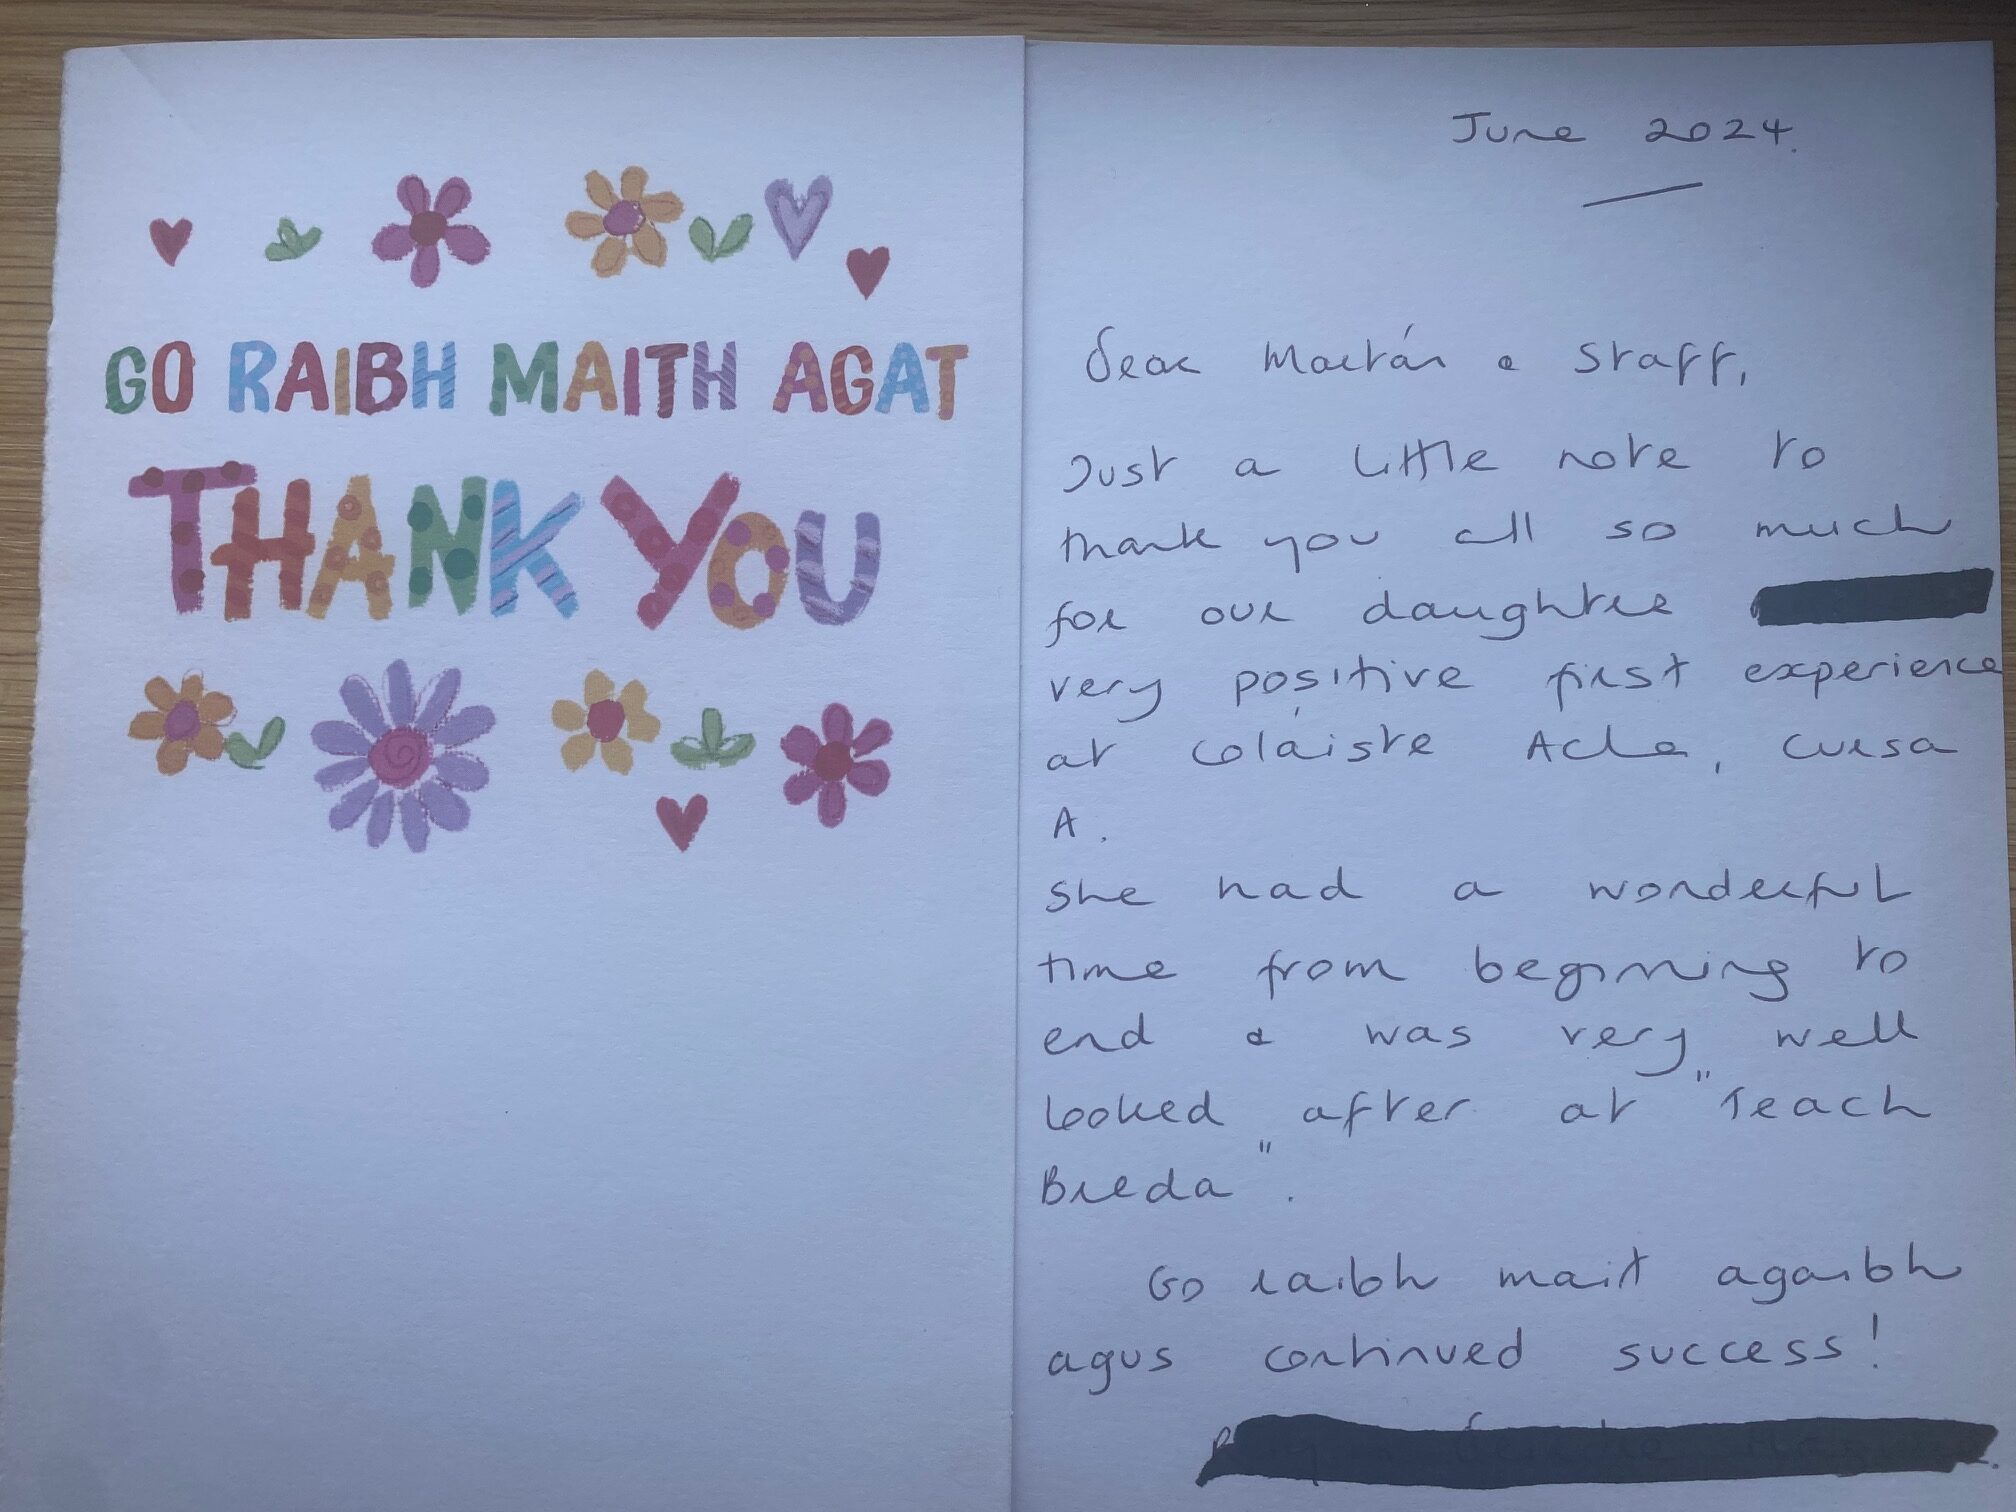 GO RAIBH MAITH AGAT
THANK YOU
June 2024.
Dear Martán & Staff,
Just a little note to
thank you all so much
for our daughter
very positive first experience
at Coláiste Acla, Cursa
A.
She had a wonderful
time from beginning to
end & was very well
looked after at "Teach
Breda".
Go raibh mait agaibh
agus continued success!